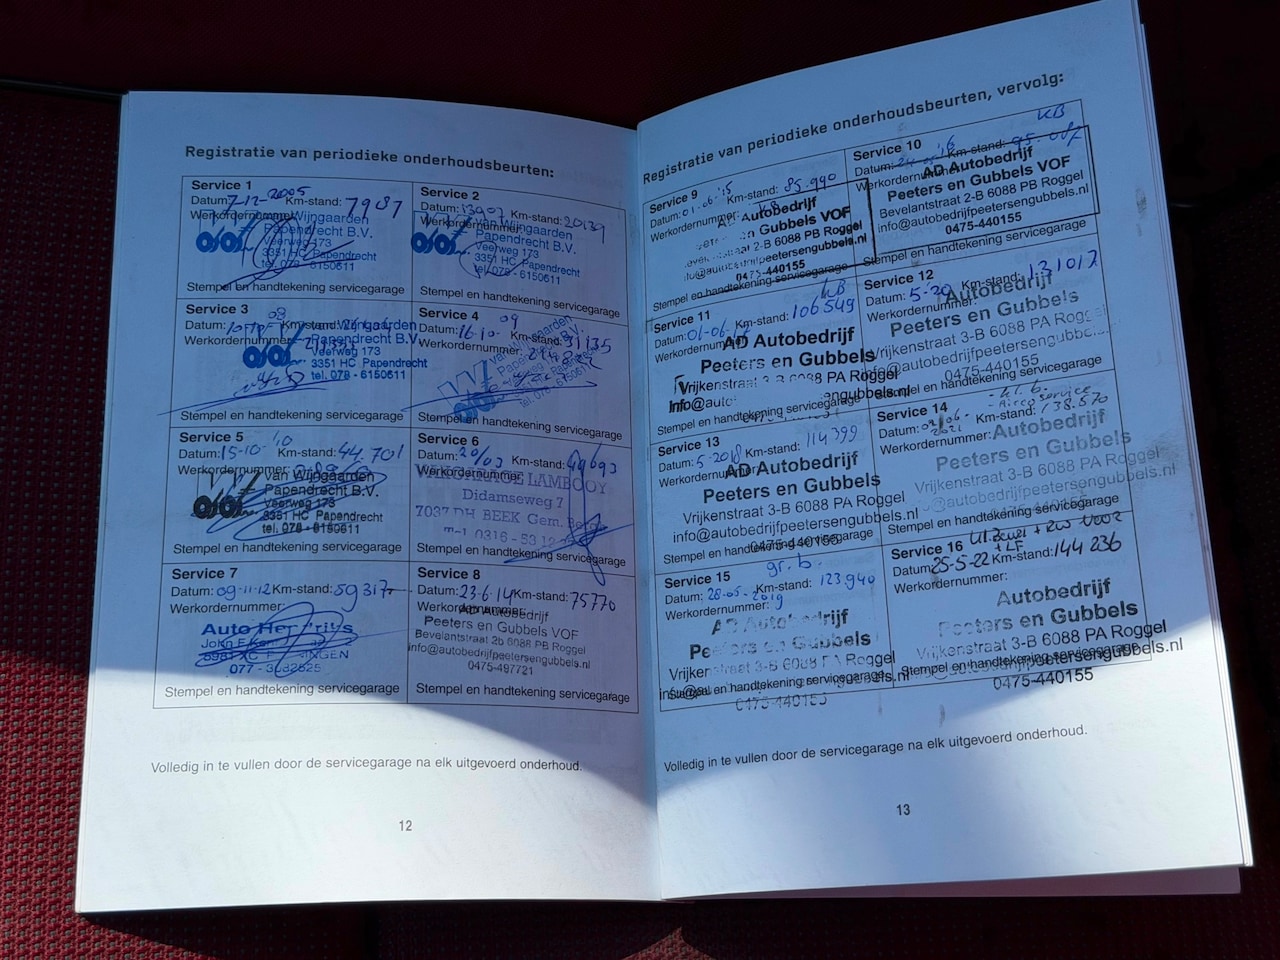 Registratie van periodieke onderhoudsbeurten:
Service 1
Datum: 7-12-2005 Km-stand: 7987
Werkordernummer:
van Wijngaarden
Papendrecht B.V.
Veerweg 173
3351 HC Papendrecht
tel. 078 - 6150611
Stempel en handtekening servicegarage
Service 2
Datum: 130907 Km-stand: 20139
Werkordernummer:
van Wijngaarden
Papendrecht B.V.
Veerweg 173
3351 HC Papendrecht
tel. 078 - 6150611
Stempel en handtekening servicegarage
Service 3
08
Datum: Km-stand:
Werkordernummer:
van Wijngaarden
Papendrecht B.V.
Veerweg 173
3351 HC Papendrecht
tel. 078 - 6150611
Stempel en handtekening servicegarage
Service 4
09
Datum: 16-10- Km-stand: 31135
Werkordernummer:
van Wijngaarden
Stempel en handtekening servicegarage
Service 5
'10
Datum: 15-10- Km-stand: 44.701
Werkordernummer:
van Wijngaarden
Papendrecht B.V.
Veerweg 173
3351 HC Papendrecht
tel. 078 - 6150611
Stempel en handtekening servicegarage
Service 6
Datum: 20/03 Km-stand: 49693
Werkordernummer:
LAMBOOY
Didamseweg 7
7037 DH BEEK Gem.
0316 - 53
Stempel en handtekening servicegarage
Service 7
Datum: 09-11-12 Km-stand: 59317
Werkordernummer:
Auto
John F.
077 -
Stempel en handtekening servicegarage
Service 8
Datum: 23-6-14 Km-stand: 75770
Werkordernummer:
AD Autobedrijf
Peeters en Gubbels VOF
Bevelantstraat 2b 6088 PA Roggel
info@autobedrijfpeetersengubbels.nl
0475-497721
Stempel en handtekening servicegarage
Volledig in te vullen door de servicegarage na elk uitgevoerd onderhoud.
12
Registratie van periodieke onderhoudsbeurten, vervolg:
Service 9
Datum: 01-06-'15 Km-stand: 85.990
Werkordernummer: KB
Autobedrijf
Peeters en Gubbels VOF
2-B 6088 PJ Roggel
info@autobedrijfpeetersengubbels.nl
0475-440155
Stempel en handtekening servicegarage
Service 10 KB
Datum: Km-stand:
Werkordernummer:
AD Autobedrijf
Peeters en Gubbels VOF
Bevelantstraat 2-B 6088 PB Roggel
info@autobedrijfpeetersengubbels.nl
0475-440155
Stempel en handtekening servicegarage
Service 11 KB
Datum: 01-06- Km-stand: 106549
Werkordernummer:
AD Autobedrijf
Peeters en Gubbels
Vrijkenstraat 3-B 6088 PA Roggel
Info@autobedrijfpeetersengubbels.nl
Stempel en handtekening servicegarage
Service 12
Datum: 5-20 Km-stand: 131017
Werkordernummer:
Autobedrijf
Peeters en Gubbels
Vrijkenstraat 3-B 6088 PA Roggel
info@autobedrijfpeetersengubbels.nl
0475-440155
Stempel en handtekening servicegarage
Service 13
Datum: 5-2018 Km-stand: 114399
Werkordernummer:
AD Autobedrijf
Peeters en Gubbels
Vrijkenstraat 3-B 6088 PA Roggel
info@autobedrijfpeetersengubbels.nl
0475-440155
Stempel en handtekening servicegarage
Service 14 - kl. b.
- Airco service
Datum: 02/06- 2021 Km-stand: 138.570
Werkordernummer:
Autobedrijf
Peeters en Gubbels
Vrijkenstraat 3-B 6088 PA Roggel
info@autobedrijfpeetersengubbels.nl
0475-440155
Stempel en handtekening servicegarage
Service 15 gr. b.
Datum: 28-05-2019 Km-stand: 123.940
Werkordernummer:
AD Autobedrijf
Peeters en Gubbels
Vrijkenstraat 3-B 6088 PA Roggel
info@autobedrijfpeetersengubbels.nl
0475-440155
Stempel en handtekening servicegarage
Service 16
+ LF
Datum: 25-5-22 Km-stand: 144 236
Werkordernummer:
Autobedrijf
Peeters en Gubbels
Vrijkenstraat 3-B 6088 PA Roggel
info@autobedrijfpeetersengubbels.nl
0475-440155
Stempel en handtekening servicegarage
Volledig in te vullen door de servicegarage na elk uitgevoerd onderhoud.
13